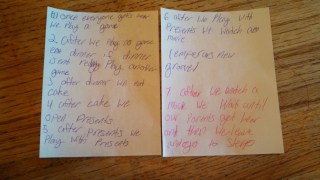 1) once everyone gets here
we Play a game
2. after we Play a game
eat dinner if dinner
isent ready Play another
game
3 after dinner we eat
cake
4 after cake we
open Presents
5 after Presents we
Play with Presents
6 after we Play with
Presents we watch our
movie
(emperors new
groove)
7 after we watch a
movie we wait until
our Parents get here
and then
to sleep